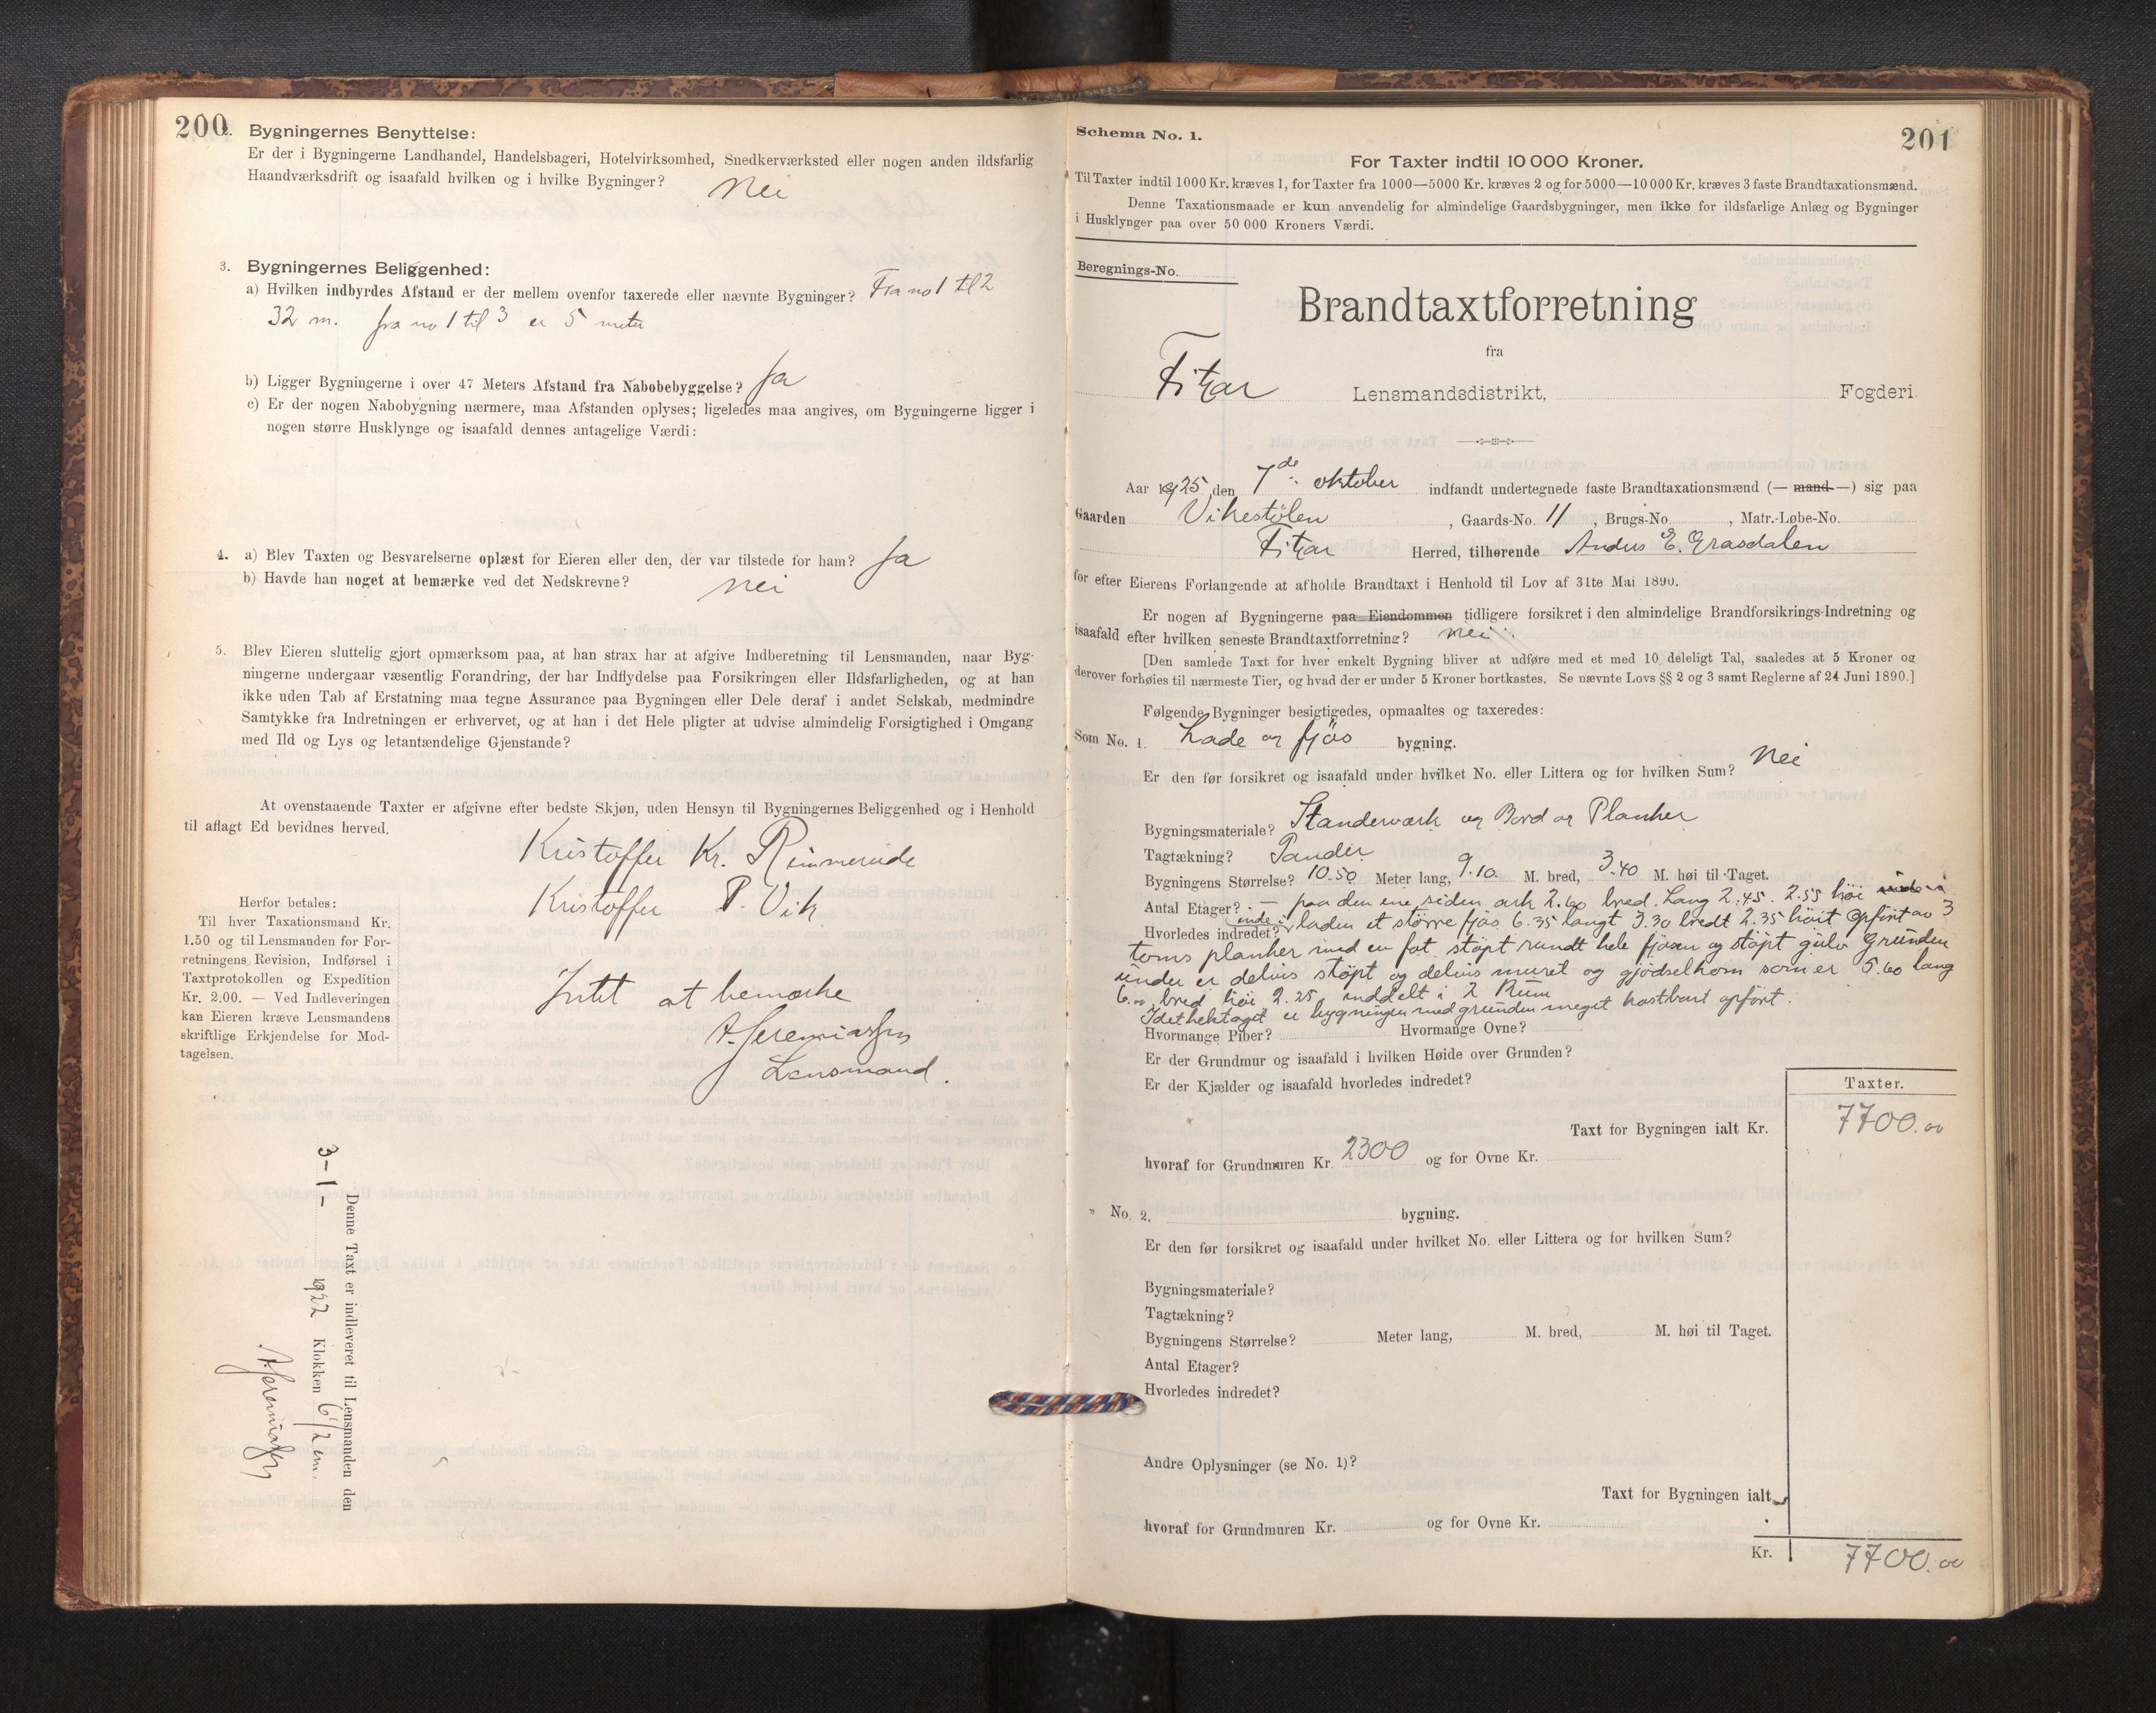 200
2. Bygningernes Benyttelse:
Er der i Bygningerne Landhandel, Handelsbageri, Hotelvirksomhed, Snedkerværksted eller nogen anden ildsfarlig
Haandværksdrift og isaafald hvilken og i hvilke Bygninger? Nei
3. Bygningernes Beliggenhed:
a) Hvilken indbyrdes Afstand er der mellem ovenfor taxerede eller nævnte Bygninger? Fra no 1 til 2
32 m. fra no 1 til 3 er 5 meter
b) Ligger Bygningerne i over 47 Meters Afstand fra Nabobebyggelse? Ja
c) Er der nogen Nabobygning nærmere, maa Afstanden oplyses; ligeledes maa angives, om Bygningerne ligger i
nogen større Husklynge og isaafald dennes antagelige Værdi:
4. a) Blev Taxten og Besvarelserne oplæst for Eieren eller den, der var tilstede for ham? Ja
b) Havde han noget at bemærke ved det Nedskrevne? Nei
5. Blev Eieren sluttelig gjort opmærksom paa, at han strax har at afgive Indberetning til Lensmanden, naar Byg-
ningerne undergaar væsentlig Forandring, der har Indflydelse paa Forsikringen eller Ildsfarligheden, og at han
ikke uden Tab af Erstatning maa tegne Assurance paa Bygningen eller Dele deraf i andet Selskab, medmindre
Samtykke fra Indretningen er erhvervet, og at han i det Hele pligter at udvise almindelig Forsigtighed i Omgang
med Ild og Lys og letantændelige Gjenstande?
At ovenstaaende Taxter er afgivne efter bedste Skjøn, uden Hensyn til Bygningernes Beliggenhed og i Henhold
til aflagt Ed bevidnes herved.
Kristoffer Kr. Rimmereide
Kristoffer P. Vik
Herfor betales:
Til hver Taxationsmand Kr.
1.50 og til Lensmanden for For-
retningens Revision, Indførsel i
Taxtprotokollen og Expedition
Kr. 2.00. — Ved Indleveringen
kan Eieren kræve Lensmandens
skriftlige Erkjendelse for Mod-
tagelsen.
Intet at bemærke
A. Jeremiassen
Lensmand.
Denne Taxt er indleveret til Lensmanden den
3-1- 1922 Klokken 6 1/2 em.
A Jeremiassen
201
Schema No. 1.
For Taxter indtil 10 000 Kroner.
Til Taxter indtil 1000 Kr. kræves 1, for Taxter fra 1000—5000 Kr. kræves 2 og for 5000—10 000 Kr. kræves 3 faste Brandtaxationsmænd.
Denne Taxationsmaade er kun anvendelig for almindelige Gaardsbygninger, men ikke for ildsfarlige Anlæg og Bygninger
i Husklynger paa over 50 000 Kroners Værdi.
Beregnings-No.
Brandtaxtforretning
fra
Fitjar Lensmandsdistrikt, Fogderi
Aar 1925, den 7de oktober indfandt undertegnede faste Brandtaxationsmænd (— mand —) sig paa
Gaarden Vikestølen, Gaards-No. 11, Brugs-No. , Matr.-Løbe-No.
Fitjar Herred, tilhørende Andus E. Grasdalen
for efter Eierens Forlangende at afholde Brandtaxt i Henhold til Lov af 31te Mai 1890.
Er nogen af Bygningerne paa Eiendommen tidligere forsikret i den almindelige Brandforsikrings-Indretning og
isaafald efter hvilken seneste Brandtaxtforretning? nei
[Den samlede Taxt for hver enkelt Bygning bliver at udføre med et med 10 deleligt Tal, saaledes at 5 Kroner og
derover forhøies til nærmeste Tier, og hvad der er under 5 Kroner bortkastes. Se nævnte Lovs §§ 2 og 3 samt Reglerne af 24 Juni 1890.]
Følgende Bygninger besigtigedes, opmaaltes og taxeredes:
Som No. 1. Lade og fjøs bygning.
Er den før forsikret og isaafald under hvilket No. eller Littera og for hvilken Sum? Nei
Bygningsmateriale? Standerværk og Bord og Planker
Tagtækning? Pander
Bygningens Størrelse? 10.50 Meter lang, 9.10 M. bred, 3.40 M. høi til Taget.
Antal Etager? — paa den ene siden ark 2.60 bred. Lang 2.45. 2.55 høi
Hvorledes indredet? inde i laden et større fjøs 6.35 langt 3.30 bredt 2.35 høit opført av 3
toms planker med en fot støpt rundt hele fjøsen og støpt gulv Grunden
under er delvis støpt og delvis muret og gjødselkom som er 5.60 lang
6.00 bred høi 2.25 inddelt i 2 Rum
I det heletaget er bygningen med grunden meget kostbart opført.
Hvormange Piber? Hvormange Ovne?
Er der Grundmur og isaafald i hvilken Høide over Grunden?
Er der Kjælder og isaafald hvorledes indredet?
Taxter.
Taxt for Bygningen ialt Kr. 7700.00
hvoraf for Grundmuren Kr. 2300 og for Ovne Kr.
" No. 2. bygning.
Er den før forsikret og isaafald under hvilket No. eller Littera og for hvilken Sum?
Bygningsmateriale?
Tagtækning?
Bygningens Størrelse? Meter lang, M. bred, M. høi til Taget.
Antal Etager?
Hvorledes indredet?
Andre Oplysninger (se No. 1)?
Taxt for Bygningen ialt
hvoraf for Grundmuren Kr. og for Ovne Kr.
Kr. 7700.00